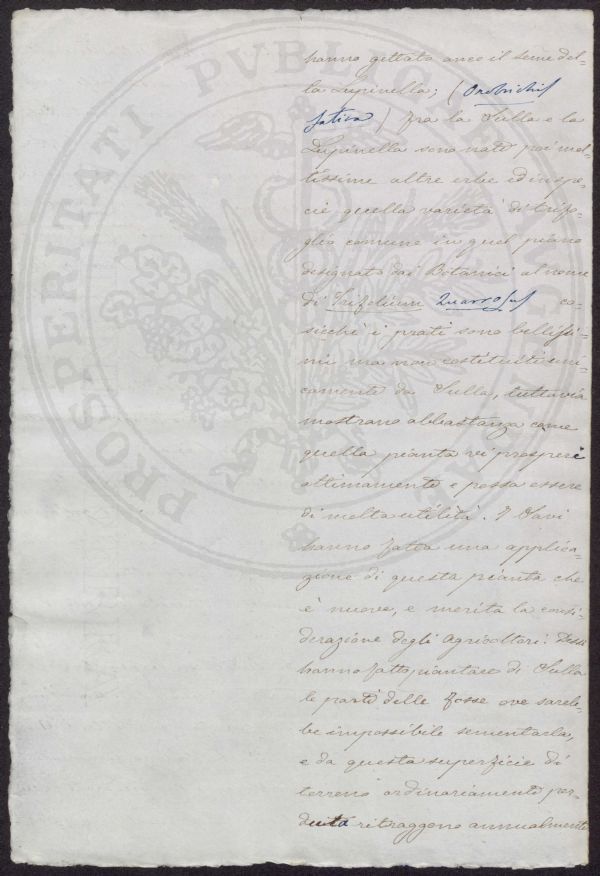 PROSPERITATI PVBLICAE AVGENDAE
hanno gettato anco il seme del=
la Lupinella; (Onobrichis
sativa) fra la Sulla e la
Lupinella sono nate poi mol=
tissime altre erbe ed in spe=
cie quella varietà di trifo=
glio comune in quel piano
designato dai Botanici al nome
di Trifolium Quarrosus co=
sicchè i prati sono bellissi=
mi ma non costituiti uni=
camente da Sulla, tuttavia
mostrano abbastanza come
quella pianta vi prosperi
ottimamente e possa essere
di molta utilità. I Savi
hanno fatta una applica=
zione di questa pianta che
è nuova, e merita la consi=
derazione degli Agricoltori: Essi
hanno fatto piantare di Sulla
le pareti delle fosse ove sareb=
be impossibile sementarla,
e da questa superficie di
terreno ordinariamente per=
duta ritraggono annualmente